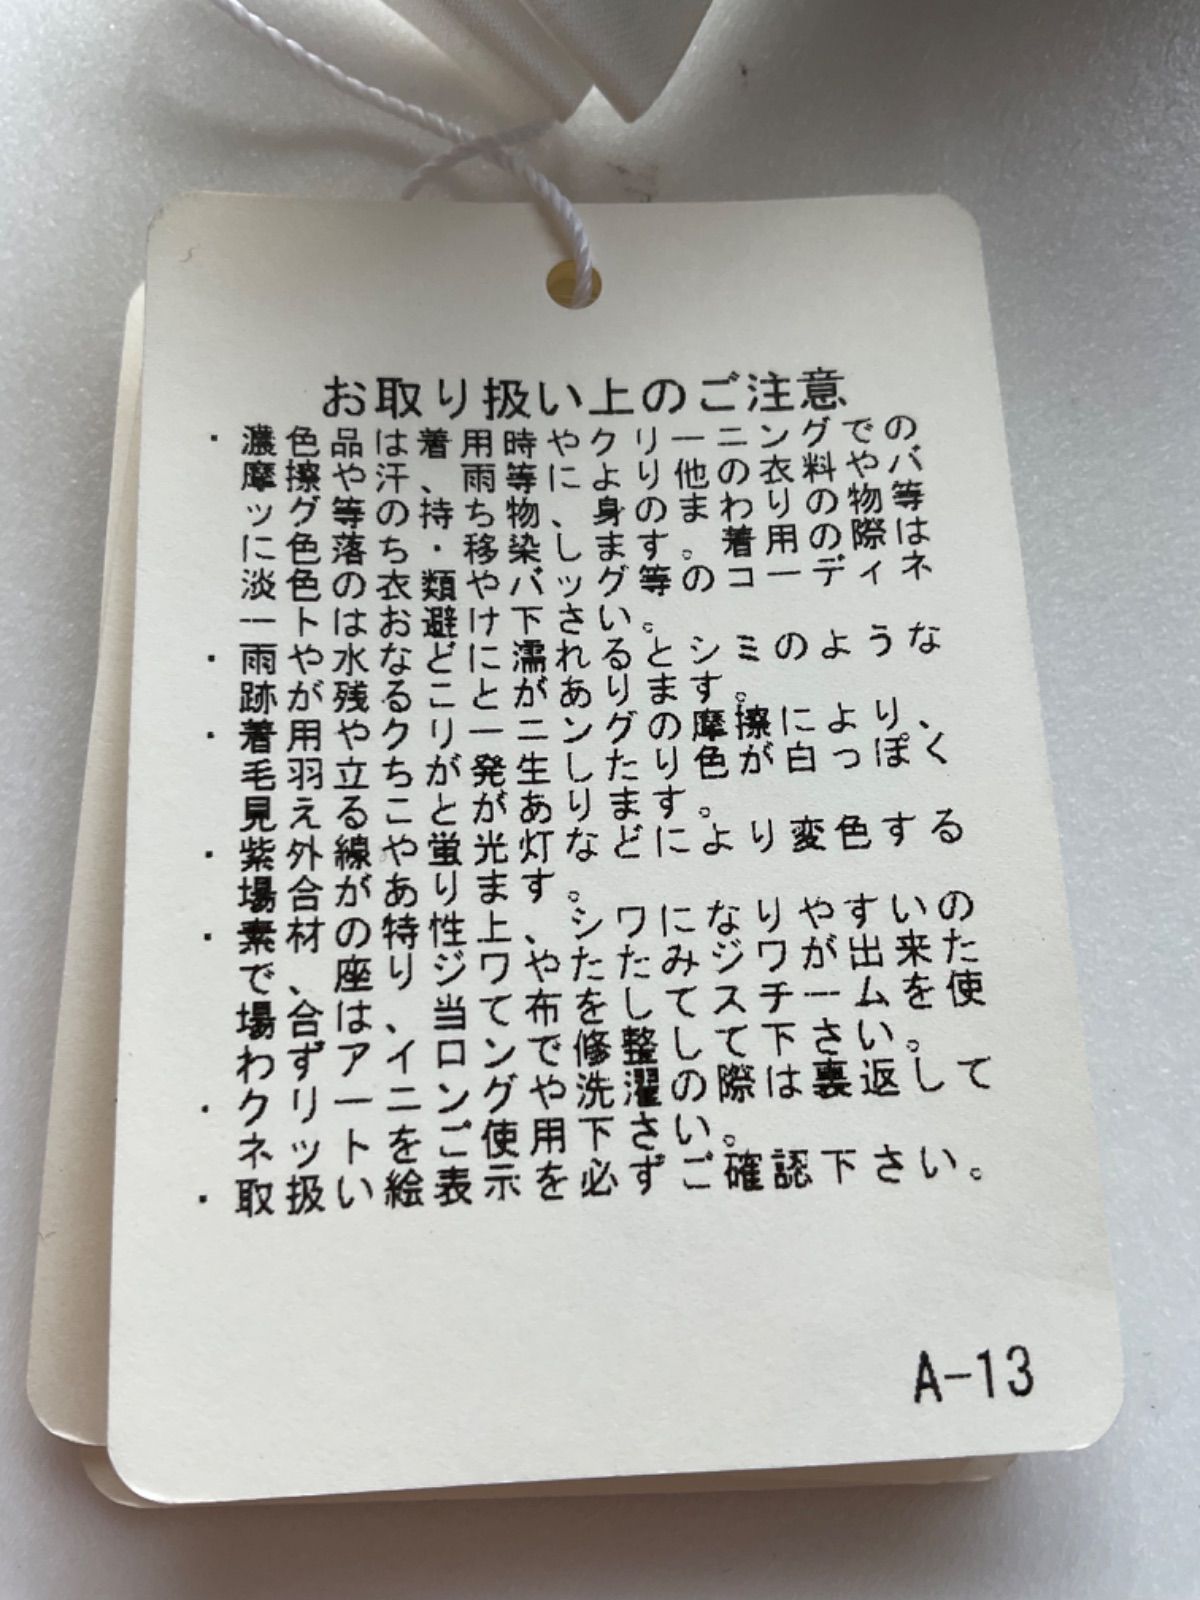 お取り扱い上のご注意
・濃色品は着用時やクリーニングでの
摩擦や汗、雨等により他の衣料やバ
ッグ等の持ち物、身のまわりの物等
に色落ち・移染します。着用の際は
淡色の衣類やバッグ等のコーディネ
ートはお避け下さい。
・雨や水などに濡れるとシミのような
跡が残ることがあります。
・着用やクリーニングの摩擦により、
毛羽立ちが発生したり色が白っぽく
見えることがあります。
・紫外線や蛍光灯などにより変色する
場合があります。
・素材の特性上、シワになりやすいの
で、座りジワやたたみジワが出来た
場合は、当て布をしてスチームを使
わずアイロンで修整して下さい。
・クリーニングや洗濯の際は裏返して
ネットをご使用下さい。
・取扱い絵表示を必ずご確認下さい。
A-13